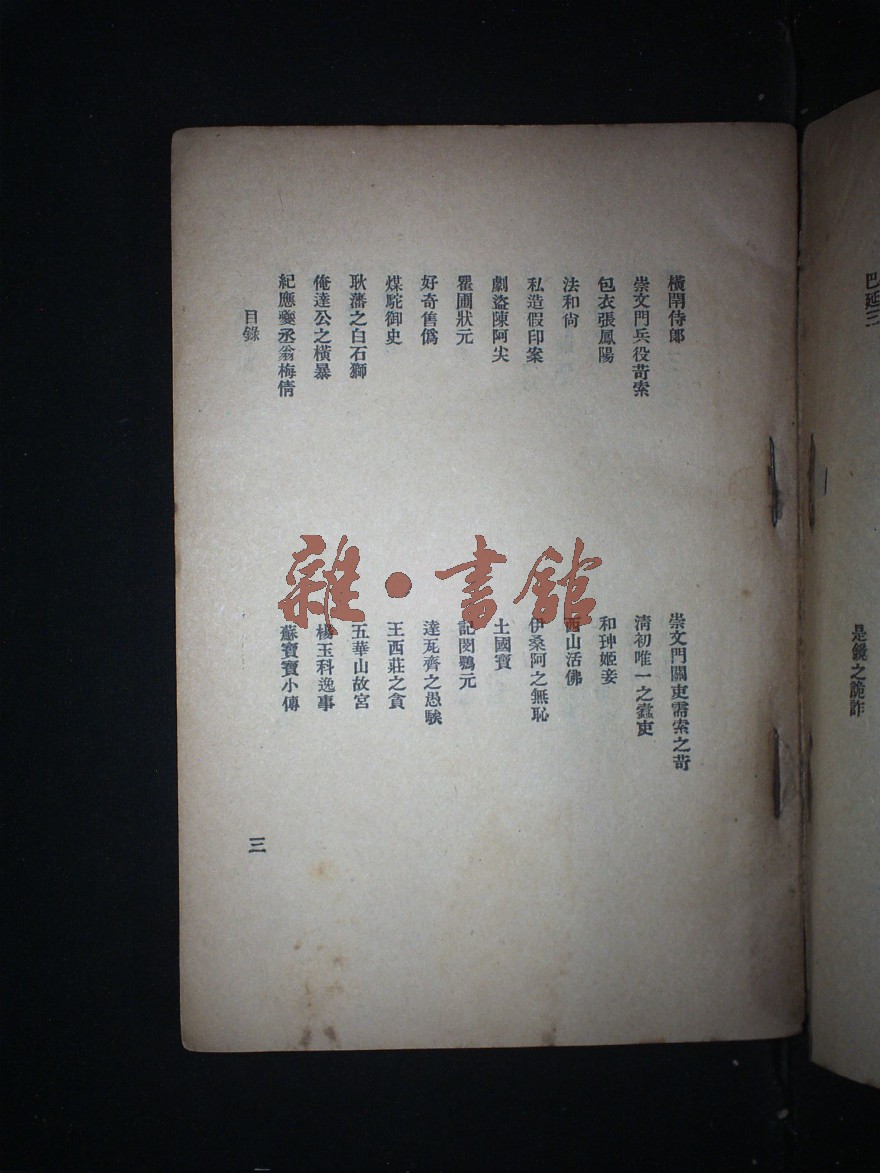 巴延三
是鏡之詭詐
橫閙侍郎
崇文門關吏需索之苛
崇文門兵役苛索
清初唯一之蠹吏
包衣張鳳陽
和珅姬妾
法和尙
西山活佛
私造假印案
伊桑阿之無恥
劇盜陳阿尖
土國寶
瞿圃狀元
記閔鶚元
好奇售僞
達瓦齊之愚騃
煤駝御史
王西莊之貪
耿藩之白石獅
五華山故宮
俺達公之橫暴
楊玉科逸事
紀應夔丞翁梅倩
蘇寶寶小傳
目錄
三
雜·書館